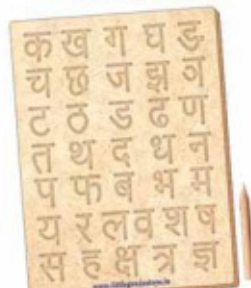 क ख ग घ ङ
च छ ज झ ञ
ट ठ ड ढ ण
त थ द ध न
प फ ब भ म
य र ल व श ष
स ह क्ष त्र ज्ञ